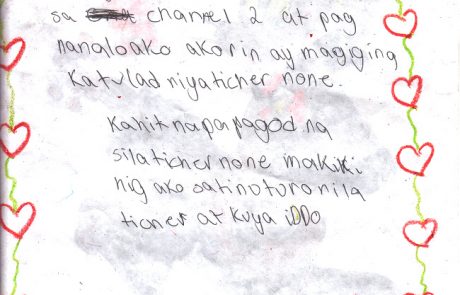 sa channel 2 at pag
nanaloako akorin ay magiging
katulad niyaticher none.
Kahit napapagod na
silaticher none makiki
nig ako satinotoronila
ticher at kuya iDDo